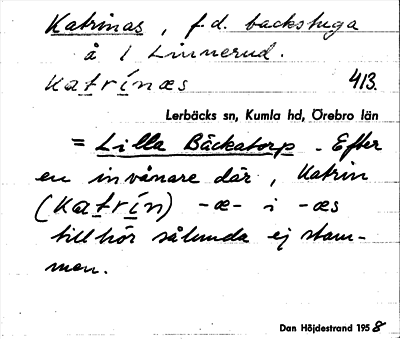 Katrinas, f.d. backstuga
å 1 Linnerud.
Katrínæs 413.
Lerbäcks sn, Kumla hd, Örebro län
= Lilla Bäckatorp. Efter
en invånare där, Katrin
(Katrín) -æ- i -æs
tillhör sålunda ej stam-
men.
Dan Höjdestrand 1958